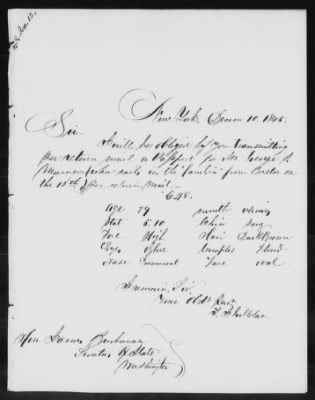 New York, Decem 10, 1845.
Sir
I will be obliged by your transmitting
per return mail a Passport for Mr George A
who sails in the Cambria from Boston
on the 16th per return mail.
Age 29 mouth
Stat 5.10 Chin long
Fore High Hair Dark Brown
Eyes Blue Complex Florid
Nose Prominent Face oval
I remain Sir,
Your Obt Servt
Hon James Buchanan
Secretary of State
Washington